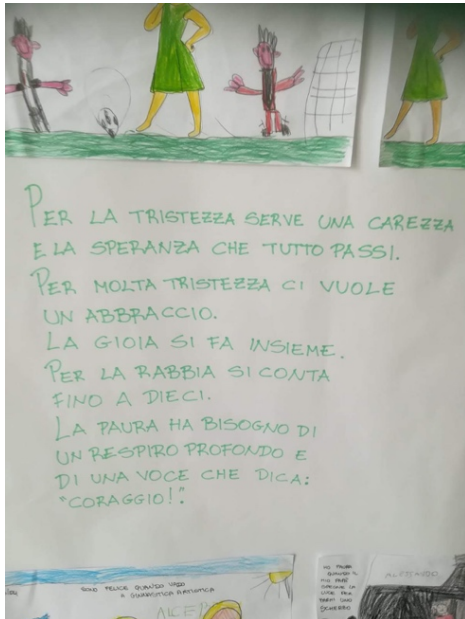 PER LA TRISTEZZA SERVE UNA CAREZZA
E LA SPERANZA CHE TUTTO PASSI.
PER MOLTA TRISTEZZA CI VUOLE
UN ABBRACCIO.
LA GIOIA SI FA INSIEME.
PER LA RABBIA SI CONTA
FINO A DIECI.
LA PAURA HA BISOGNO DI
UN RESPIRO PROFONDO E
DI UNA VOCE CHE DICA:
"CORAGGIO!".
SONO FELICE QUANDO VADO
A GINNASTICA ARTISTICA
ALICE
HO PAURA
QUANDO IL
MIO PAPÀ
SPEGNE LA
LUCE PER
FARMI UNO
SCHERZO